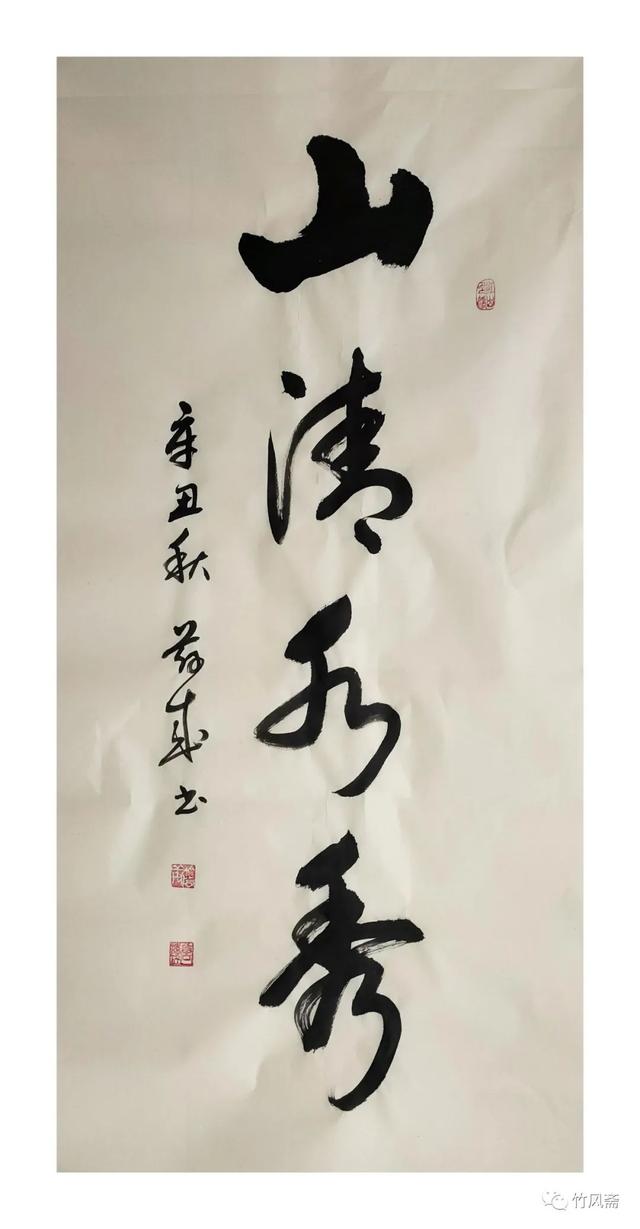 山清水秀
辛丑秋 苏成书
竹风斋